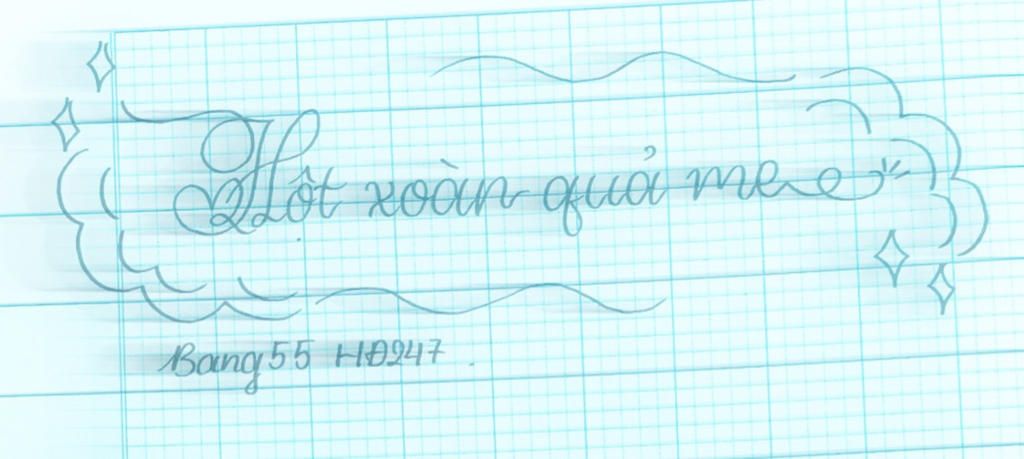 Hột xoàn quả me
Bang55 HĐ247.